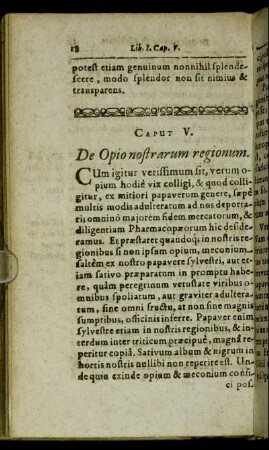 18 Lib. I. Cap. V.
potest etiam genuinum nonnihil splende-
scere, modo splendor non sit nimius &
transparens.
CAPUT V.
De Opio nostrarum regionum.
CUm igitur verissimum sit, verum o-
pium hodiè vix colligi, & quod colli-
gitur, ex mitiori papaverum genere, sæpè
multis modis adulteratum ad nos deporta-
ri: omninò majorem fidem mercatorum, &
diligentiam Pharmacopæorum hîc deside-
ramus. Et præstaret quandoq; in nostris re-
gionibus si non ipsum opium, meconium
saltẽm ex nostro papavere sylvestri, aut et-
iam sativo præparatum in promptu habe-
re, quàm peregrinum vetustate viribus o-
mnibus spoliatum, aut graviter adultera-
tum, sine omni fructu, at non sine magnis
sumptibus, officinis inferre. Papaver enim
sylvestre etiam in nostris regionibus, & in-
terdum inter triticum præcipuè, magnâ re-
peritur copiâ. Sativum album & nigrum in
hortis nostris nullibi non reperire est. Un-
de quin exinde opium & meconium confi-
ci pos-